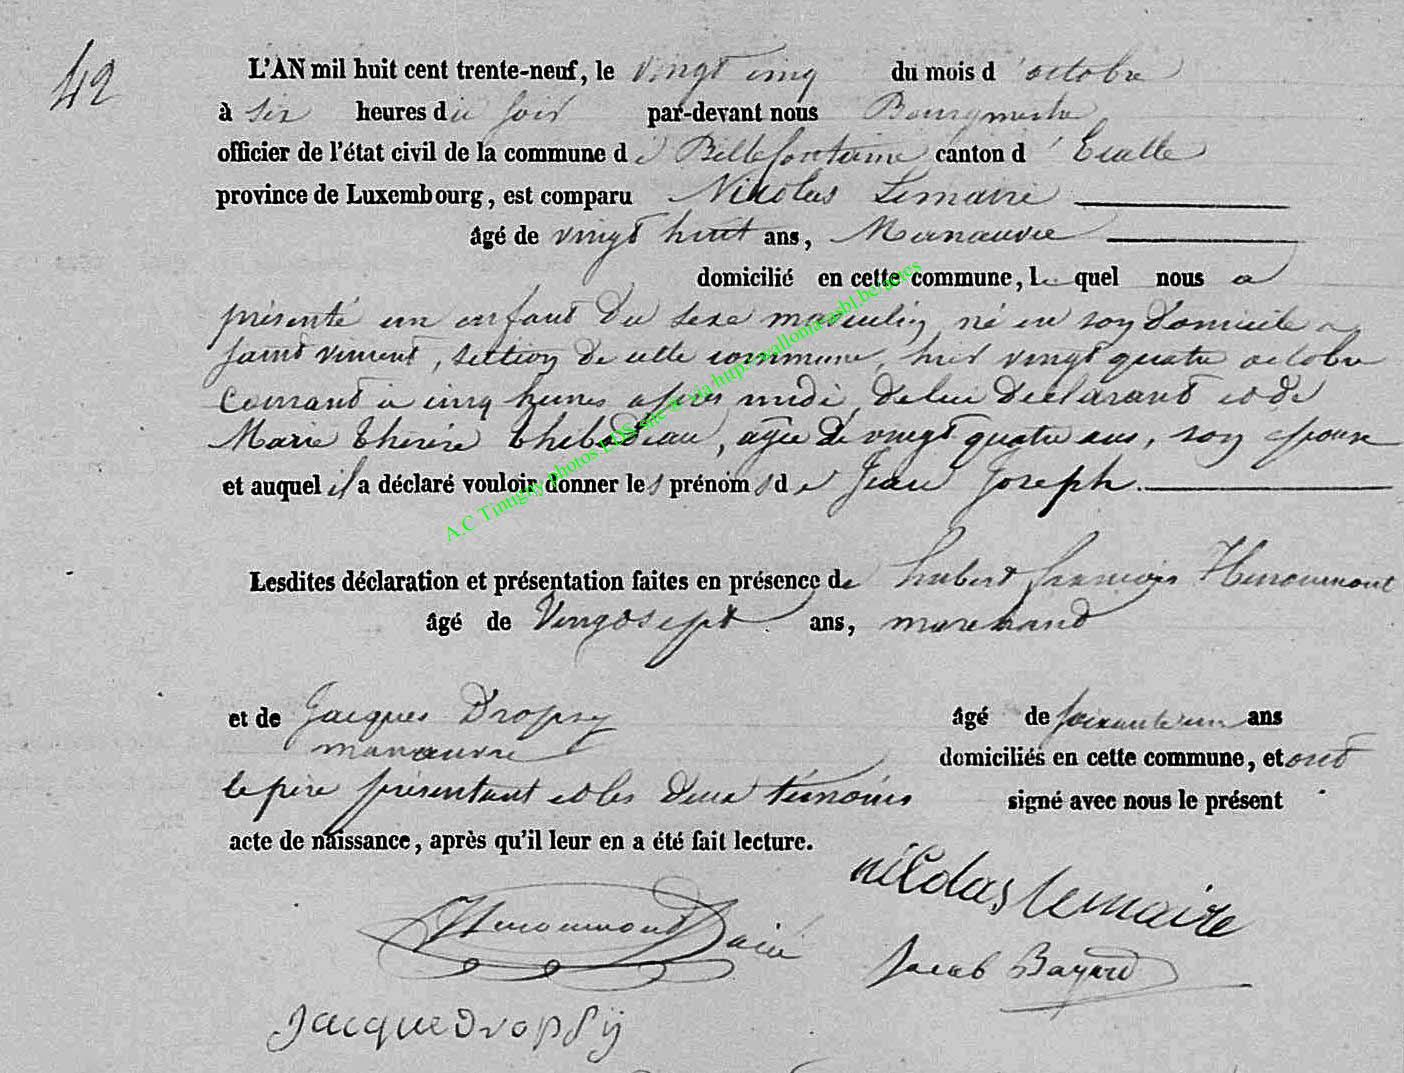 42
L'AN mil huit cent trente-neuf, le vingt cinq du mois d'octobre
à six heures du soir par-devant nous Bourgmestre
officier de l'état civil de la commune de Bellefontaine canton d'Etalle
province de Luxembourg, est comparu Nicolas Lemaire
âgé de vingt huit ans, Manœuvre
domicilié en cette commune, lequel nous a
présenté un enfant du sexe masculin, né en son domicile a
saint vincent, section de cette commune, hier vingt quatre octobre
courant a cinq heures après midi, de lui déclarant et de
Marie thérèse thibaudeau, agée de vingt quatre ans, son épouse
et auquel il a déclaré vouloir donner les prénoms de Jean Joseph.
Lesdites déclaration et présentation faites en présence de hubert françois Henoumont
âgé de Vingt sept ans, marchand
et de Jacques Dropsy âgé de soixante un ans
manœuvre domiciliés en cette commune, et ont
le père présentant et les deux témoins signé avec nous le présent
acte de naissance, après qu'il leur en a été fait lecture.
nicolas lemaire
Henoumont
Jacob Bayard
Jacque Dropsÿ
A.C Tintigny photos LDS site et via http://wallonia-asbl.be/actes